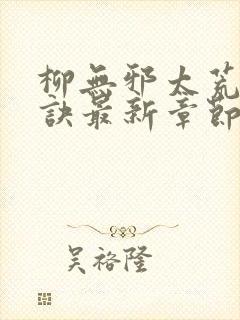 柳無邪太荒
訣最新章節
吳裕隆